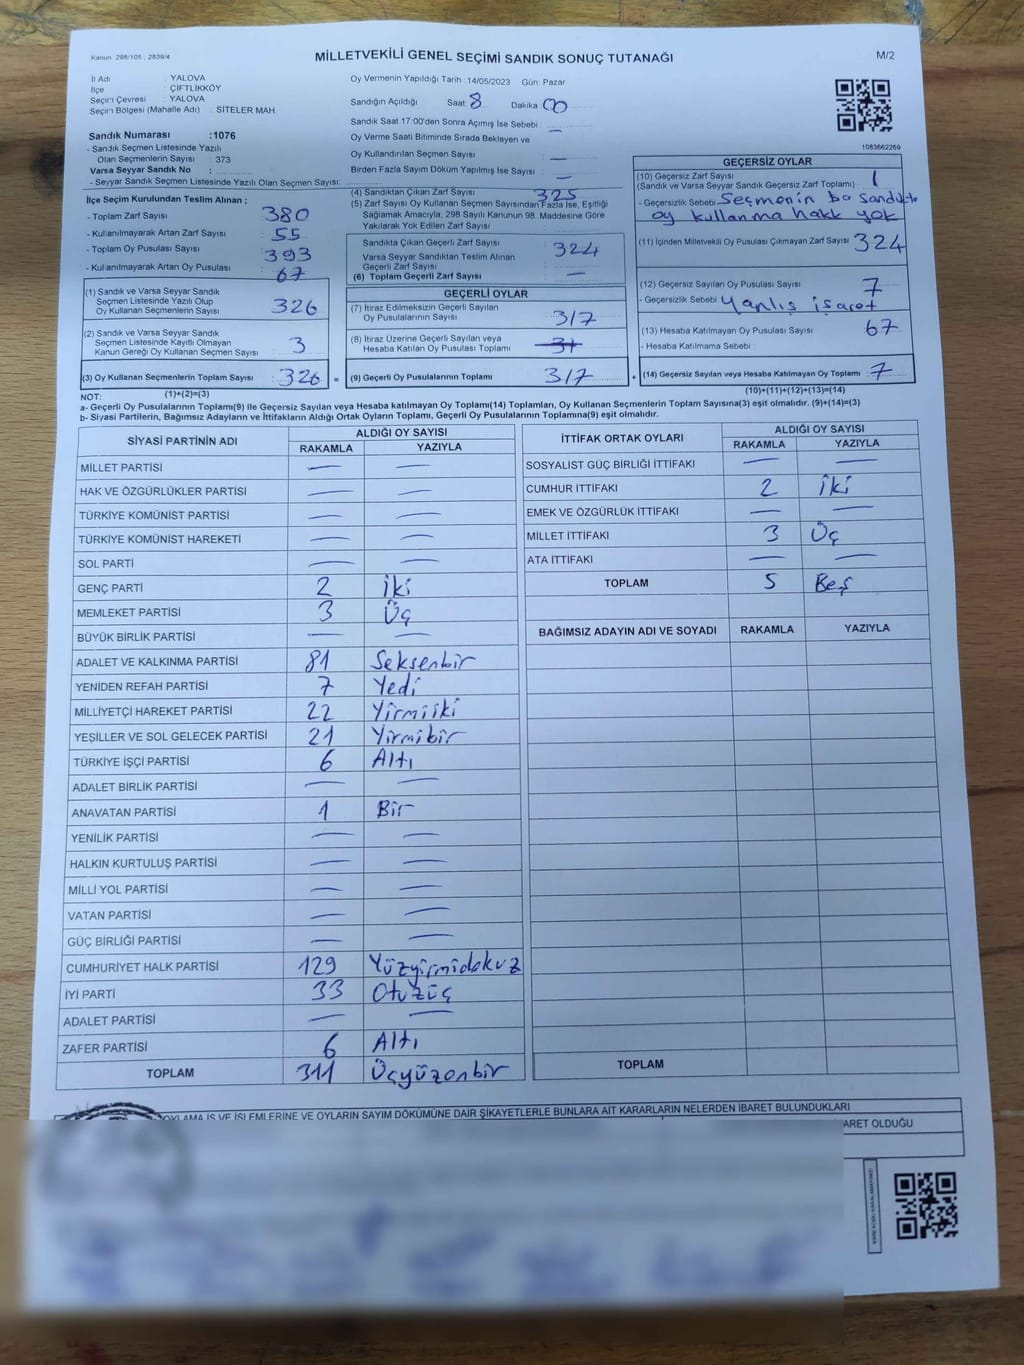 Kanun 298/105 , 2839/4
MİLLETVEKİLİ GENEL SEÇİMİ SANDIK SONUÇ TUTANAĞI
M/2
İl Adı : YALOVA
İlçe : ÇİFTLİKKÖY
Seçim Çevresi : YALOVA
Seçim Bölgesi (Mahalle Adı) : SİTELER MAH.
Oy Vermenin Yapıldığı Tarih : 14/05/2023 Gün: Pazar
Sandığın Açıldığı Saat: 8 Dakika 00
Sandık Saat 17:00'den Sonra Açılmış İse Sebebi : —
Oy Verme Saati Bitiminde Sırada Bekleyen ve
Oy Kullandırılan Seçmen Sayısı —
Birden Fazla Sayım Döküm Yapılmış İse Sayısı : —
1083662269
Sandık Numarası :1076
- Sandık Seçmen Listesinde Yazılı
Olan Seçmenlerin Sayısı : 373
Varsa Seyyar Sandık No :
- Seyyar Sandık Seçmen Listesinde Yazılı Olan Seçmen Sayısı:
İlçe Seçim Kurulundan Teslim Alınan ;
- Toplam Zarf Sayısı : 380
- Kullanılmayarak Artan Zarf Sayısı : 55
- Toplam Oy Pusulası Sayısı : 393
- Kullanılmayarak Artan Oy Pusulası : 67
(1) Sandık ve Varsa Seyyar Sandık
Seçmen Listesinde Yazılı Olup
Oy Kullanan Seçmenlerin Sayısı : 326
(2) Sandık ve Varsa Seyyar Sandık
Seçmen Listesinde Kayıtlı Olmayan
Kanun Gereği Oy Kullanan Seçmen Sayısı : 3
(3) Oy Kullanan Seçmenlerin Toplam Sayısı : 326 =
(4) Sandıktan Çıkan Zarf Sayısı : 325
(5) Zarf Sayısı Oy Kullanan Seçmen Sayısından Fazla İse, Eşitliği
Sağlamak Amacıyla; 298 Sayılı Kanunun 98. Maddesine Göre
Yakılarak Yok Edilen Zarf Sayısı :
Sandıkta Çıkan Geçerli Zarf Sayısı : 324
Varsa Seyyar Sandıktan Teslim Alınan
Geçerli Zarf Sayısı
(6) Toplam Geçerli Zarf Sayısı : —
GEÇERLİ OYLAR
(7) İtiraz Edilmeksizin Geçerli Sayılan
Oy Pusulalarının Sayısı : 317
(8) İtiraz Üzerine Geçerli Sayılan veya
Hesaba Katılan Oy Pusulası Toplamı :
(9) Geçerli Oy Pusulalarının Toplamı : 317 +
GEÇERSİZ OYLAR
(10) Geçersiz Zarf Sayısı
(Sandık ve Varsa Seyyar Sandık Geçersiz Zarf Toplamı) : 1
- Geçersizlik Sebebi : Seçmenin bu sandıkta
oy kullanma hakkı yok
(11) İçinden Milletvekili Oy Pusulası Çıkmayan Zarf Sayısı : 324
(12) Geçersiz Sayılan Oy Pusulası Sayısı : 7
- Geçersizlik Sebebi : Yanlış işaret
(13) Hesaba Katılmayan Oy Pusulası Sayısı : 67
- Hesaba Katılmama Sebebi :
(14) Geçersiz Sayılan veya Hesaba Katılmayan Oy Toplamı : 7
NOT: (1)+(2)=(3) (10)+(11)+(12)+(13)=(14)
a- Geçerli Oy Pusulalarının Toplamı(9) ile Geçersiz Sayılan veya Hesaba katılmayan Oy Toplamı(14) Toplamları, Oy Kullanan Seçmenlerin Toplam Sayısına(3) eşit olmalıdır. (9)+(14)=(3)
b- Siyasi Partilerin, Bağımsız Adayların ve İttifakların Aldığı Ortak Oyların Toplamı, Geçerli Oy Pusulalarının Toplamına(9) eşit olmalıdır.
SİYASİ PARTİNİN ADI ALDIĞI OY SAYISI
RAKAMLA YAZIYLA
MİLLET PARTİSİ — —
HAK VE ÖZGÜRLÜKLER PARTİSİ — —
TÜRKİYE KOMÜNİST PARTİSİ — —
TÜRKİYE KOMÜNİST HAREKETİ — —
SOL PARTİ — —
GENÇ PARTİ 2 İki
MEMLEKET PARTİSİ 3 Üç
BÜYÜK BİRLİK PARTİSİ — —
ADALET VE KALKINMA PARTİSİ 81 Seksenbir
YENİDEN REFAH PARTİSİ 7 Yedi
MİLLİYETÇİ HAREKET PARTİSİ 22 Yirmiiki
YEŞİLLER VE SOL GELECEK PARTİSİ 21 Yirmibir
TÜRKİYE İŞÇİ PARTİSİ 6 Altı
ADALET BİRLİK PARTİSİ — —
ANAVATAN PARTİSİ 1 Bir
YENİLİK PARTİSİ — —
HALKIN KURTULUŞ PARTİSİ — —
MİLLİ YOL PARTİSİ — —
VATAN PARTİSİ — —
GÜÇ BİRLİĞİ PARTİSİ — —
CUMHURİYET HALK PARTİSİ 129 Yüzyirmidokuz
İYİ PARTİ 33 Otuzüç
ADALET PARTİSİ — —
ZAFER PARTİSİ 6 Altı
TOPLAM 311 Üçyüzonbir
İTTİFAK ORTAK OYLARI ALDIĞI OY SAYISI
RAKAMLA YAZIYLA
SOSYALİST GÜÇ BİRLİĞİ İTTİFAKI — —
CUMHUR İTTİFAKI 2 İki
EMEK VE ÖZGÜRLÜK İTTİFAKI — —
MİLLET İTTİFAKI 3 Üç
ATA İTTİFAKI — —
TOPLAM 5 Beş
BAĞIMSIZ ADAYIN ADI VE SOYADI RAKAMLA YAZIYLA
TOPLAM
OYLAMA İŞ VE İŞLEMLERİNE VE OYLARIN SAYIM DÖKÜMÜNE DAİR ŞİKAYETLERLE BUNLARA AİT KARARLARIN NELERDEN İBARET BULUNDUKLARI
ARET OLDUĞU